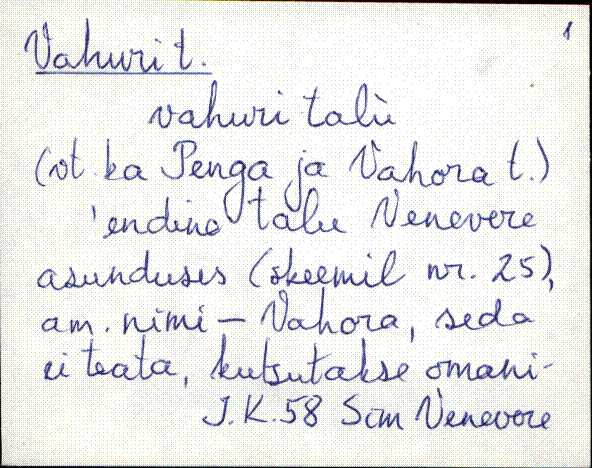 Vahuri t. 1
vahuri talu
(vt. ka Penga ja Vahora t.)
'endine talu Venevere
asunduses (skeemil nr. 25),
am. nimi – Vahora, seda
ei teata, kutsutakse omani-
J.K. 58 Sim Venevere